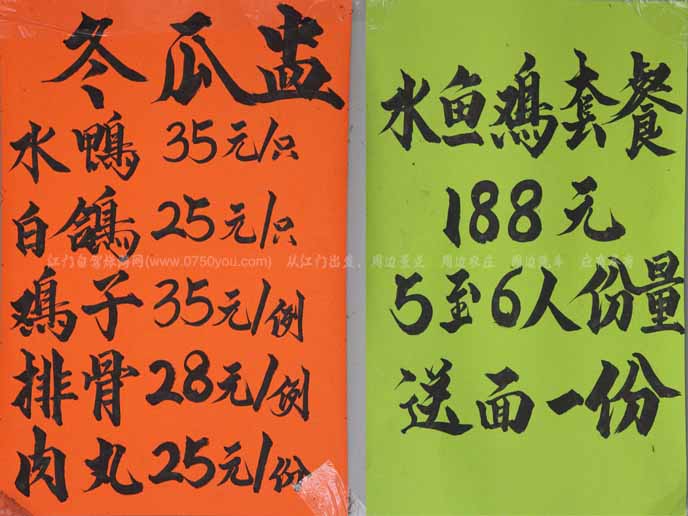 冬瓜盅
水鴨 35元/只
白鴿 25元/只
鸡子 35元/例
排骨 28元/例
肉丸 25元/份
水鱼鸡套餐
188元
5至6人份量
送面一份
江门自驾旅游网(www.0750you.com) 从江门出发，周边景点 周边农庄 周边汽车 应有尽有